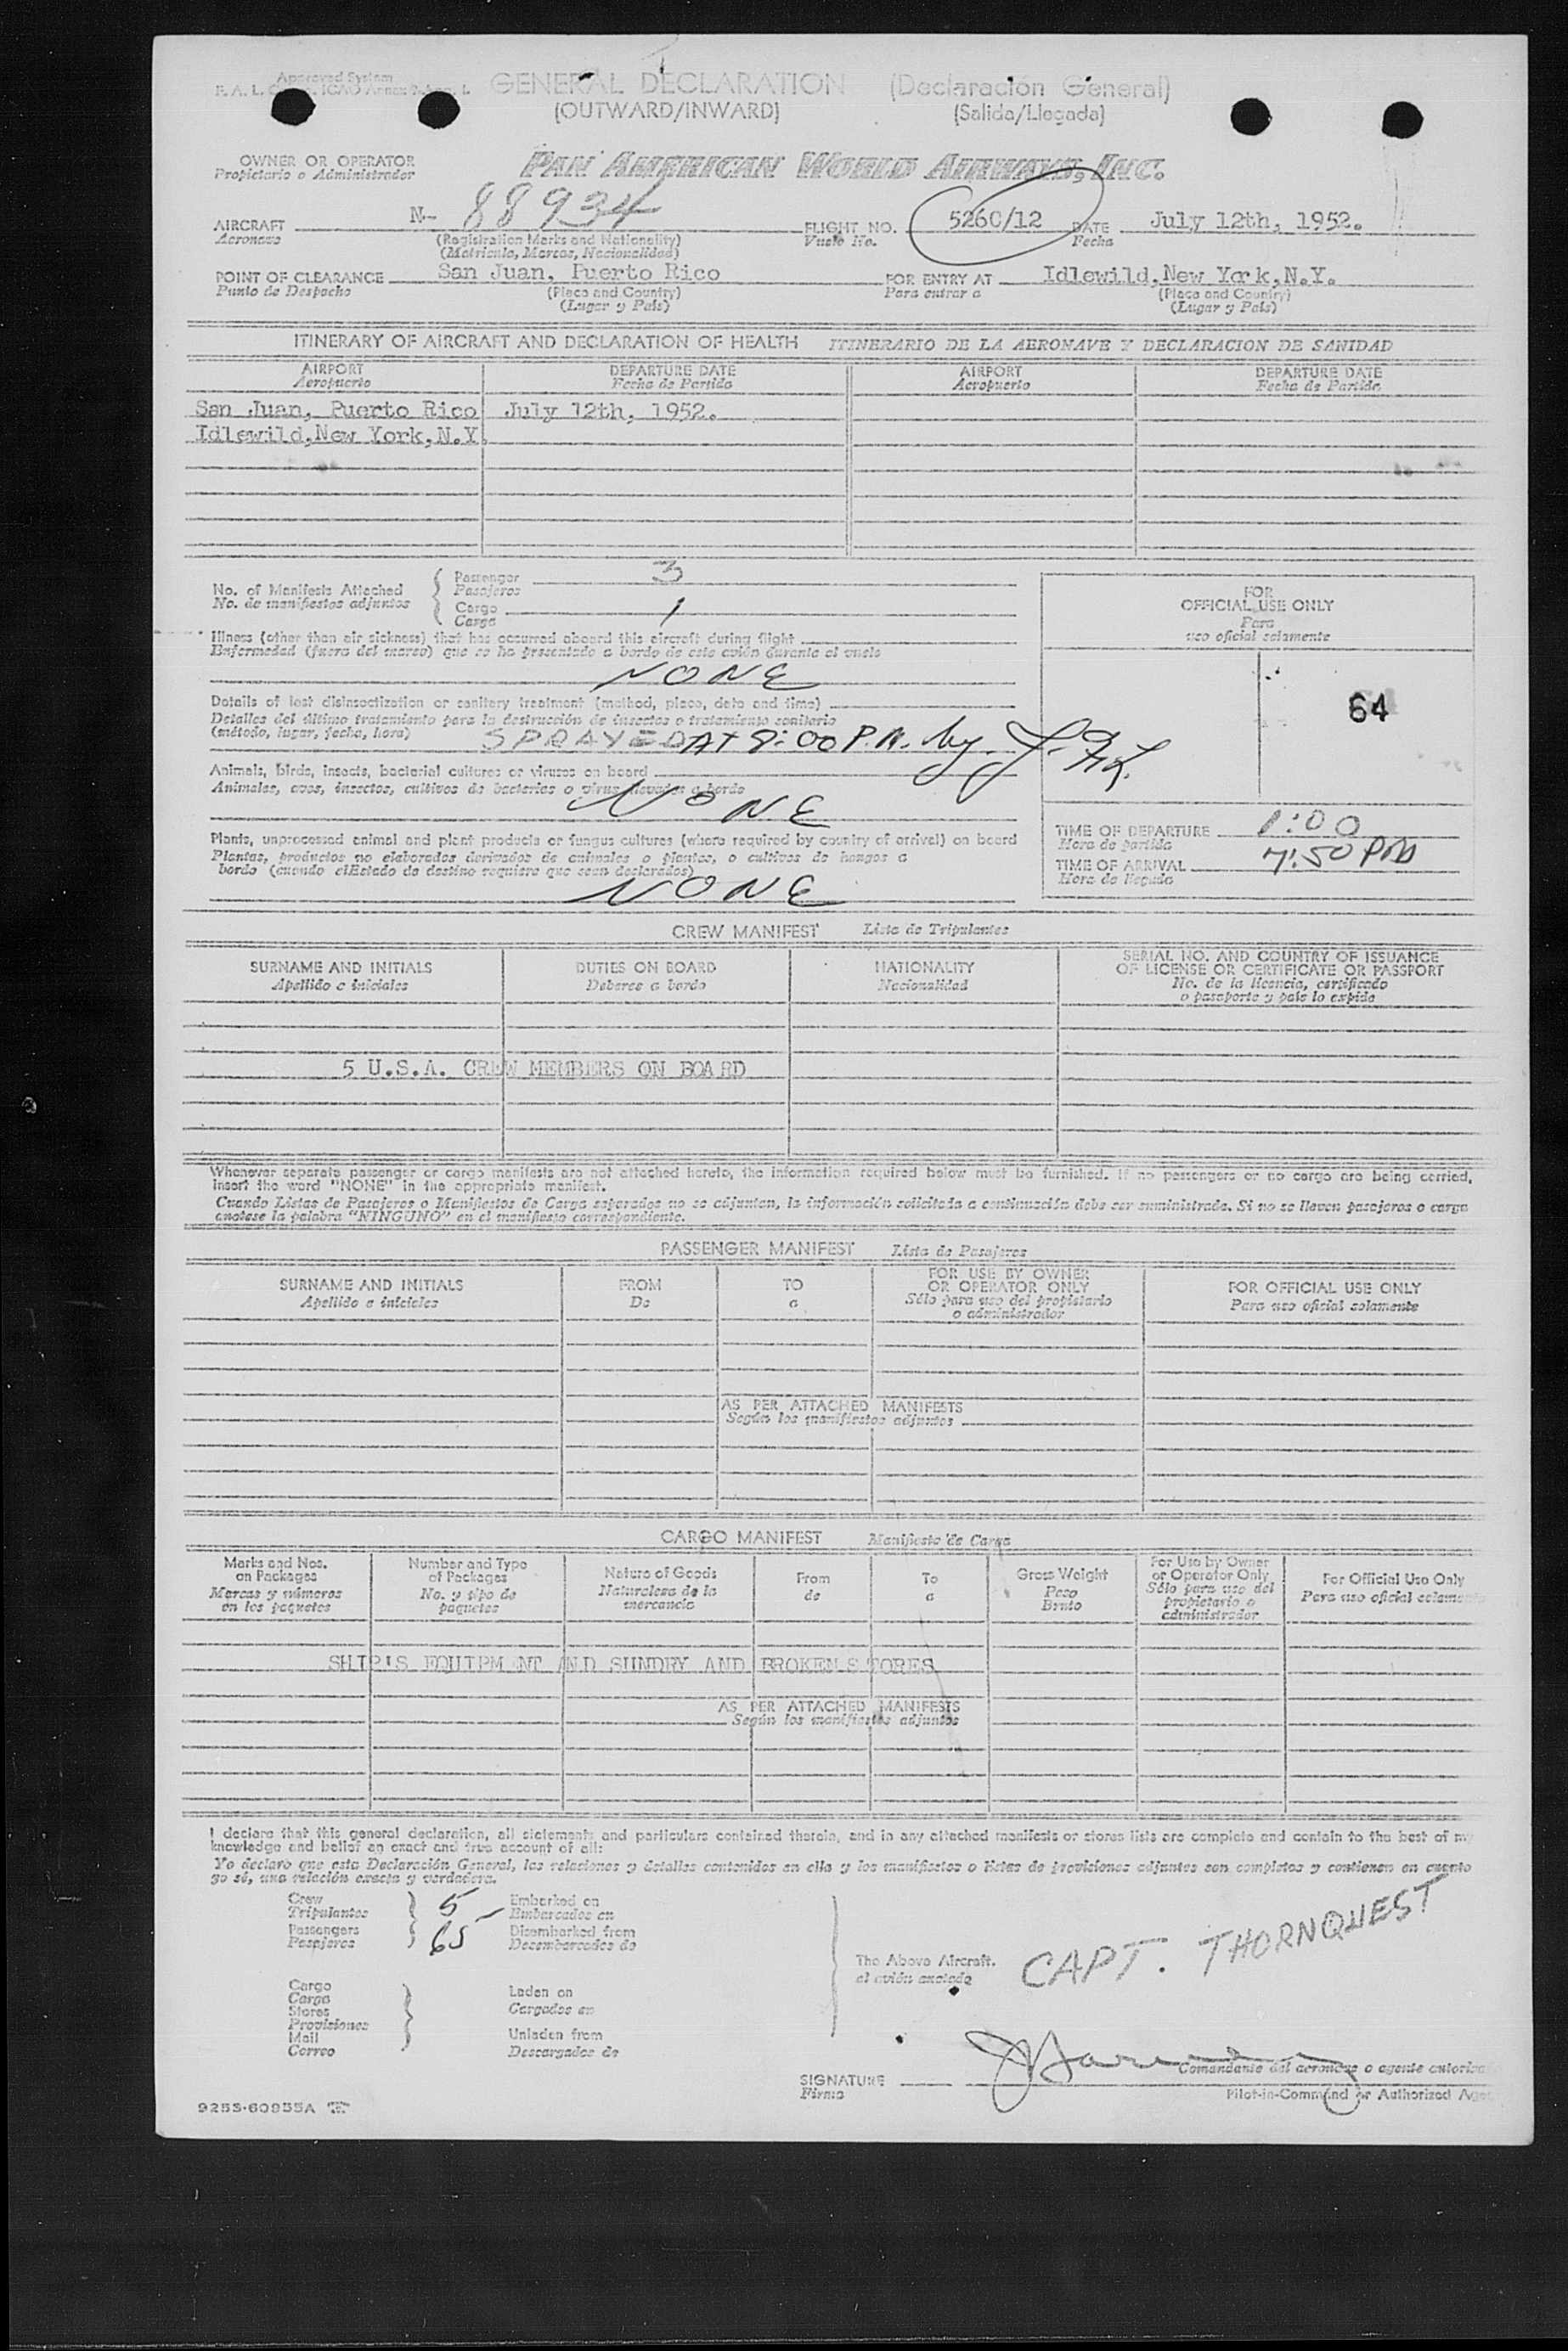 Approved System
GENERAL DECLARATION (Declaración General)
(OUTWARD/INWARD) (Salida/Llegada)
OWNER OR OPERATOR
Propietario o Administrador
PAN AMERICAN WORLD AIRWAYS, INC.
AIRCRAFT N- 88934 FLIGHT NO. 526C/12 DATE July 12th, 1952.
Aeronave (Registration Marks and Nationality) Vuelo No. Fecha
(Matricula, Marcas, Nacionalidad)
POINT OF CLEARANCE San Juan, Puerto Rico FOR ENTRY AT Idlewild,New York,N.Y.
Punto de Despacho (Place and Country) Para entrar a (Place and Country)
(Lugar y País) (Lugar y País)
ITINERARY OF AIRCRAFT AND DECLARATION OF HEALTH ITINERARIO DE LA AERONAVE Y DECLARACION DE SANIDAD
AIRPORT DEPARTURE DATE AIRPORT DEPARTURE DATE
Aeropuerto Fecha de Partida Aeropuerto Fecha de Partida
San Juan, Puerto Rico July 12th, 1952.
Idlewild,New York,N.Y.
No. of Manifests Attached Passenger 3
No. de manifiestos adjuntos Pasajeros
Cargo 1
Carga
FOR
OFFICIAL USE ONLY
Para
uso oficial solamente
64
Illness (other than air sickness) that has occurred aboard this aircraft during flight
Enfermedad (fuera del mareo) que se ha presentado a bordo de este avión durante el vuelo
NONE
Details of last disinsectization or sanitary treatment (method, place, date and time)
Detalles del último tratamiento para la destrucción de insectos o tratamiento sanitario
(método, lugar, fecha, hora) SPRAYED AT 9:00 P.M. by
Animals, birds, insects, bacterial cultures or viruses on board
Animales, aves, insectos, cultivos de bacterias o virus llevados a bordo
NONE
Plants, unprocessed animal and plant products or fungus cultures (where required by country of arrival) on board
Plantas, productos no elaborados derivados de animales o plantas, o cultivos de hongos a
bordo (cuando el Estado de destino requiere que sean declarados)
NONE
TIME OF DEPARTURE 1:00
Hora de partida
TIME OF ARRIVAL 7:50 PM
Hora de llegada
CREW MANIFEST Lista de Tripulantes
SURNAME AND INITIALS DUTIES ON BOARD NATIONALITY SERIAL NO. AND COUNTRY OF ISSUANCE
OF LICENSE OR CERTIFICATE OR PASSPORT
Apellido e iniciales Deberes a bordo Nacionalidad No. de la licencia, certificado
o pasaporte y país lo expide
5 U.S.A. CREW MEMBERS ON BOARD
Whenever separate passenger or cargo manifests are not attached hereto, the information required below must be furnished. If no passengers or no cargo are being carried,
insert the word "NONE" in the appropriate manifest.
Cuando Listas de Pasajeros o Manifiestos de Carga separados no se adjuntan, la información solicitada a continuación debe ser suministrada. Si no se llevan pasajeros o carga
anotese la palabra "NINGUNO" en el manifiesto correspondiente.
PASSENGER MANIFEST Lista de Pasajeros
SURNAME AND INITIALS FROM TO FOR USE BY OWNER
OR OPERATOR ONLY FOR OFFICIAL USE ONLY
Apellido e iniciales De a Sólo para uso del propietario
o administrador Para uso oficial solamente
AS PER ATTACHED MANIFESTS
Según los manifiestos adjuntos
CARGO MANIFEST Manifiesto de Carga
Marks and Nos.
on Packages
Marcas y números
en los paquetes
Number and Type
of Packages
No. y tipo de
paquetes
Nature of Goods
Naturaleza de la
mercancía
From
de
To
a
Gross Weight
Peso
Bruto
For Use by Owner
or Operator Only
Sólo para uso del
propietario o
administrador
For Official Use Only
Para uso oficial solamente
SHIP'S EQUIPMENT AND SUNDRY AND BROKEN STORES
AS PER ATTACHED MANIFESTS
Según los manifiestos adjuntos
I declare that this general declaration, all statements and particulars contained therein, and in any attached manifests or stores lists are complete and contain to the best of my
knowledge and belief an exact and true account of all:
Yo declaro que esta Declaración General, las relaciones y detalles contenidos en ella y los manifiestos o listas de provisiones adjuntos son completos y contienen en cuanto
yo sé, una relación exacta y verdadera.
Crew 5 Embarked on
Tripulantes Embarcados en
Passengers 65 Disembarked from
Pasajeros Desembarcados de
The Above Aircraft.
el avión anotado
CAPT. THORNQUEST
Cargo
Carga
Stores
Provisiones
Mail
Correo
Laden on
Cargados en
Unladen from
Descargados de
SIGNATURE
Firma
Comandante del aeronave o agente autoriza
Pilot-in-Command or Authorized Agent
9253-60935A